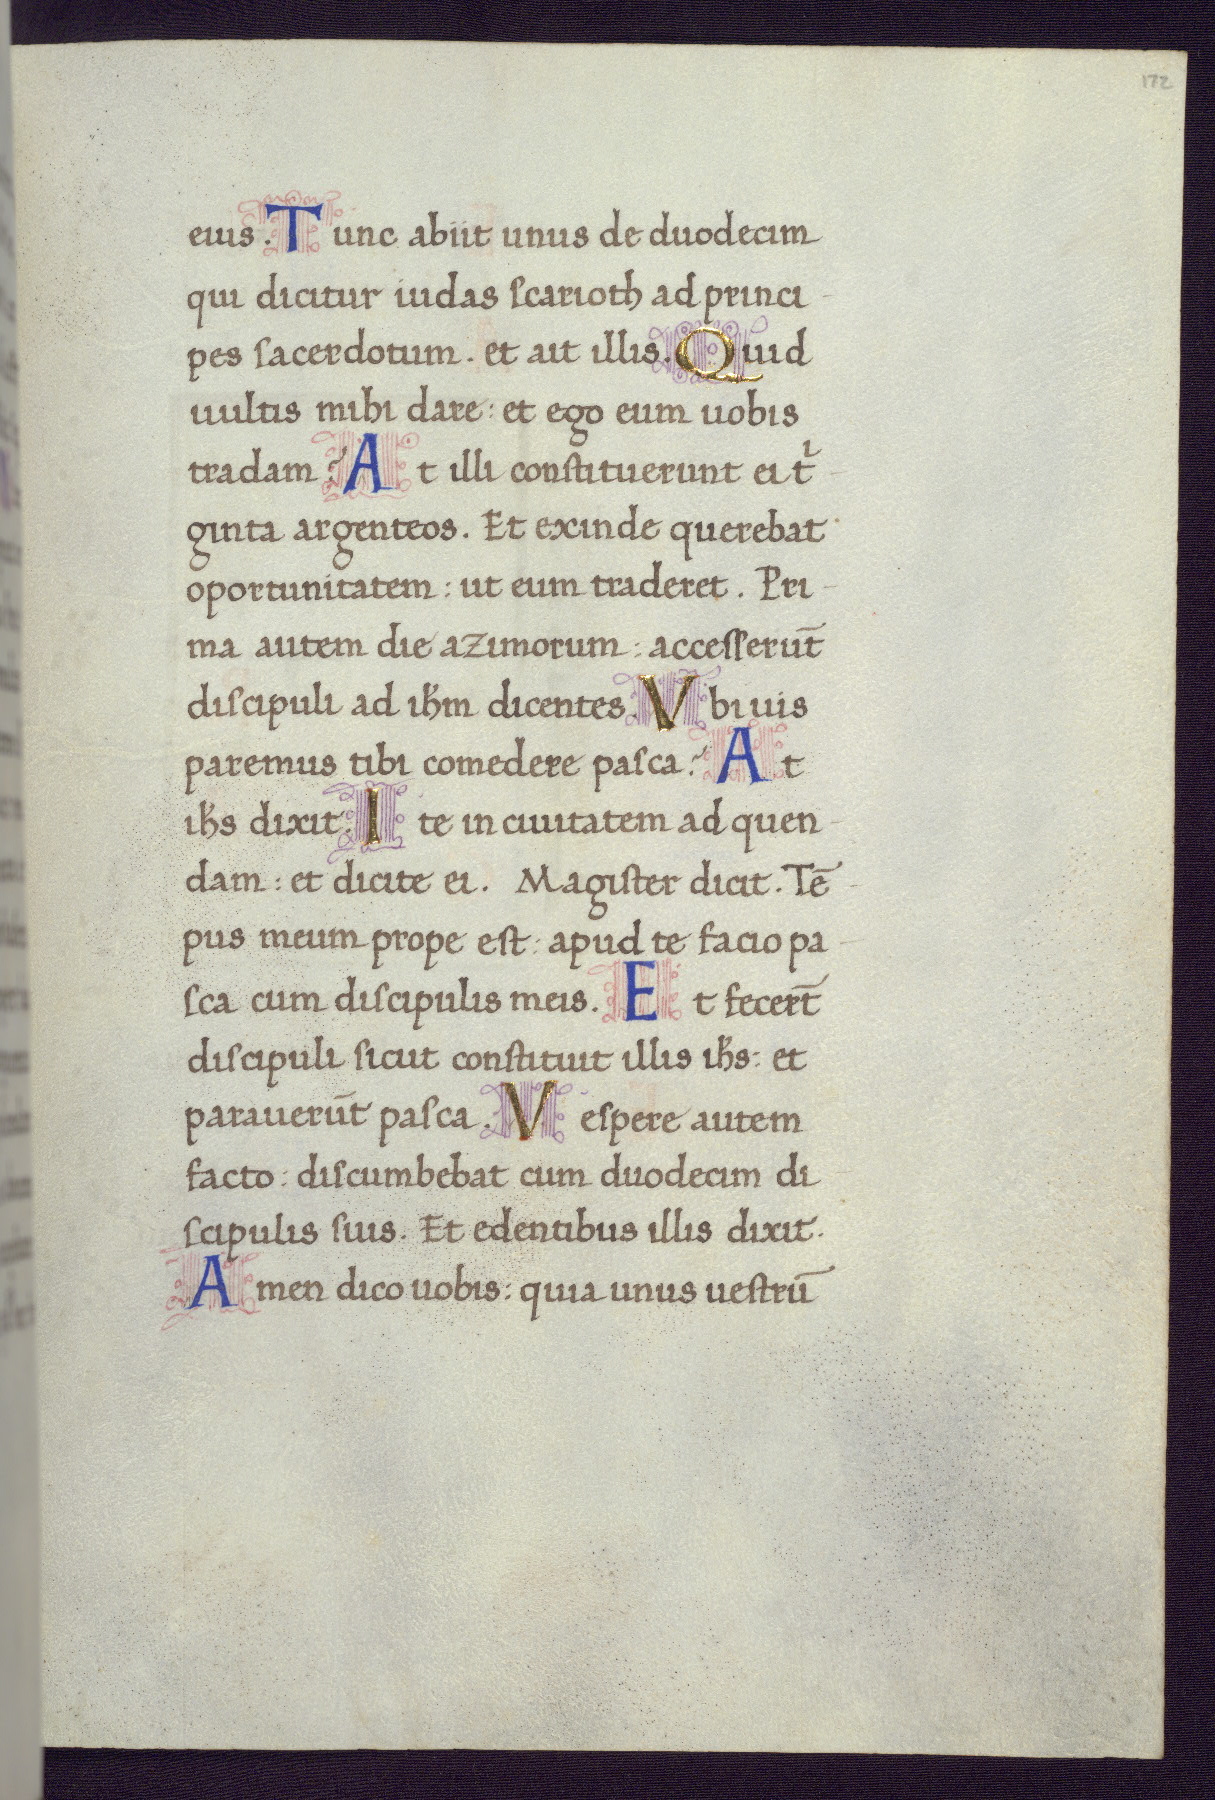 172
eius. Tunc abiit unus de duodecim
qui dicitur iudas scarioth ad princi-
pes sacerdotum. et ait illis. Quid
uultis mihi dare: et ego eum uobis
tradam? At illi constituerunt ei tͥ-
ginta argenteos. Et exinde querebat
oportunitatem: ut eum traderet. Pri-
ma autem die azimorum: accesserūt
discipuli ad ihm̄ dicentes. Vbi uis
paremus tibi comedere pasca? At
ihs̄ dixit. Ite in ciuitatem ad quen-
dam: et dicite ei. Magister dicit. Tē-
pus meum prope est: apud te facio pa-
sca cum discipulis meis. Et fecert̄
discipuli sicut constituit illis ihs̄: et
parauerūt pasca. Vespere autem
facto: discumbebat cum duodecim di
scipulis suis. Et edentibus illis dixit.
Amen dico uobis: quia unus uestrū